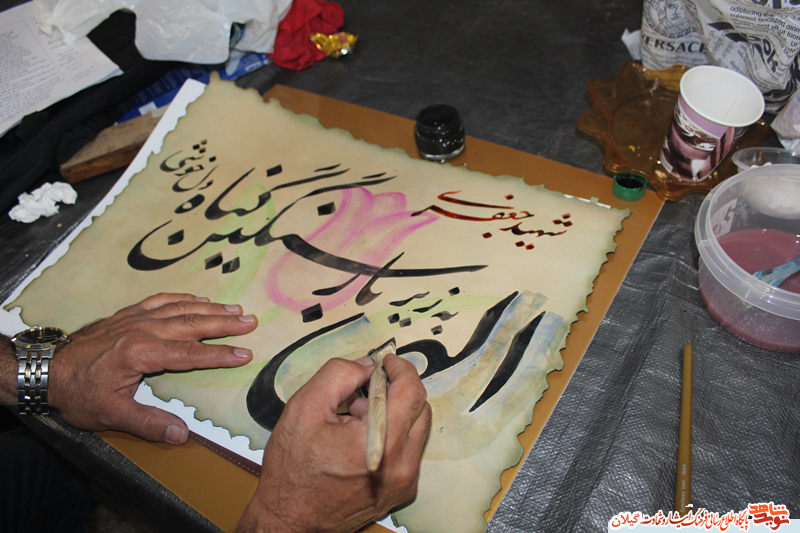 شهید جعفری
الهی
به زیر
بار سنگین گناه
دل خوشی
VERSACE
نوید شاهد
پایگاه اطلاع رسانی فرهنگ ایثار و شهادت گیلان